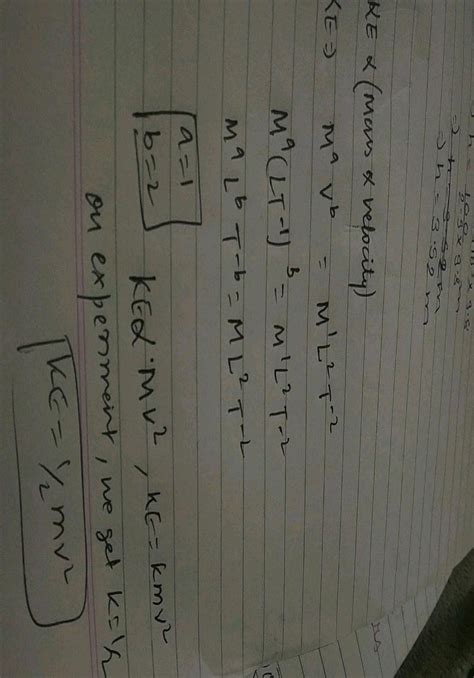 ⇒ h = 35.2 m
KE α (Mass α velocity)
KE ⇒ Mᵃ Vᵇ = M¹L²T⁻²
Mᵃ (LT⁻¹)ᵇ = M¹L²T⁻²
Mᵃ Lᵇ T⁻ᵇ = ML²T⁻²
a=1
b=2
KE α mv² , KE = kmv²
on experiment, we get K=½
KE = ½ mv²